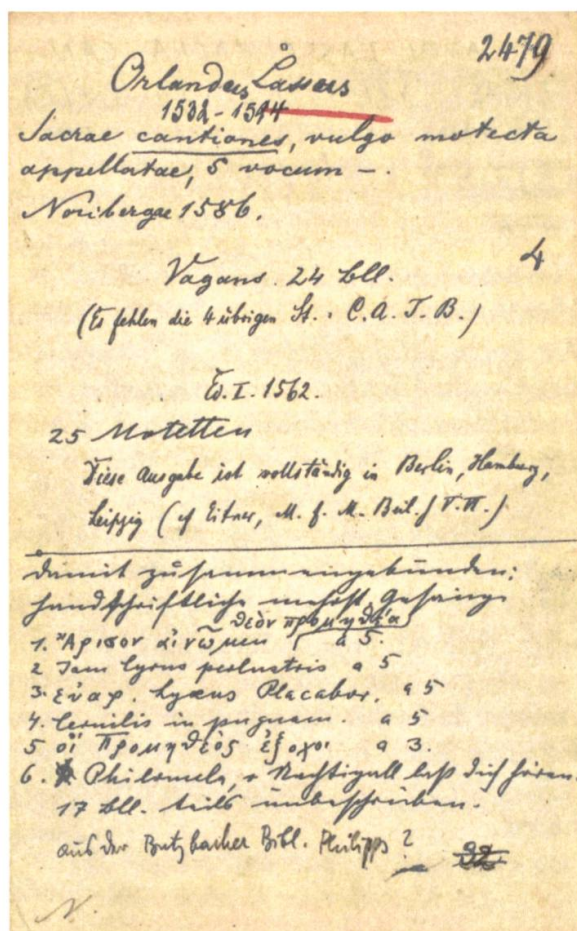 2479
Orlandus Lassus
1532-1594
Sacrae cantiones, vulgo motecta
appellatae, 5 vocum -.
Noribergae 1586.
4
Vagans. 24 bll.
(Es fehlen die 4 übrigen St.: C. A. T. B.)
Ed. I. 1562.
25 Motetten
Diese Ausgabe ist vollständig in Berlin, Hamburg,
Leipzig (cf Eitner, M. f. M. Beil.)
damit zusammengebunden:
handschriftliche Gesänge
θεὸν προμηθέα
1. Ἄρισον αἰνῶμεν a 5.
2 Jam Cyrus perlustris a 5
3. Lyaeus Placabor. a 5
4. in pugnam. a 5
5 οἱ Προμηθεὸς ἔξοχοι a 3.
6. Philomela, + Nachtigall laß dich hören.
17 bll. teils unbeschrieben.
aus der Butzbacher Bibl. Philipps?
N.